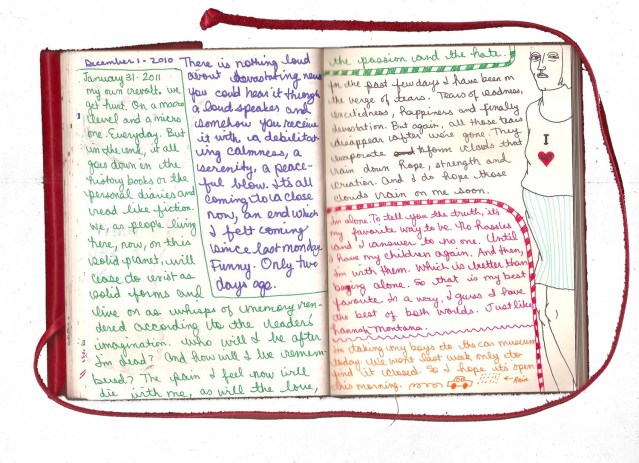 December 1 - 2010
January 31 - 2011
my own revolt. we
get hurt. On a macro
level and a micro
one. Everyday. But
in the end, it all
goes down in the
history books or the
personal diaries and
read like fiction.
We, as people living
here, now, on this
solid planet, will
cease to exist as
solid forms and
live on as whisps of memory ren-
dered according to the reader's
imagination. Who will I be after
I'm dead? And how will I be remem-
bered? The pain I feel now will
die with me, as will the love,
There is nothing loud
about devastating news
you could hear it through
a loud speaker and
somehow you receive
it with a debilitat-
ing calmness, a
serenity, a peace-
ful blow. It's all
coming to a close
now, an end which
I felt coming
since last monday.
Funny. Only two
days ago.
the passion and the hate.
In the past few days I have been on
the verge of tears. Tears of sadness,
excitedness, happiness and finally
devastation. But again, all those tears
disappear after we're gone. They
evaporate to form clouds that
rain down hope, strength and
creation. And I do hope those
clouds rain on me soon.
I'm alone. To tell you the truth, it's
my favorite way to be. No hassles
and I answer to no one. Until
I have my children again. And then,
I'm with them. Which is better than
being alone. So that is my best
favorite. In a way, I guess I have
the best of both worlds. Just like
hannah Montana.
I'm taking my boys to the car museum
today. We went last week only to
find it closed. So I hope it's open
this morning.
← Rain
I